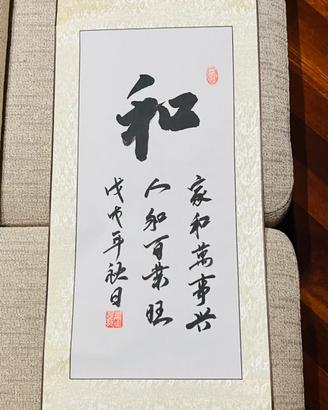 和
家和萬事兴
人和百業旺
戊戌年秋日